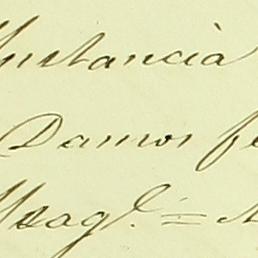 Instancià
Damos fe
Magl. =